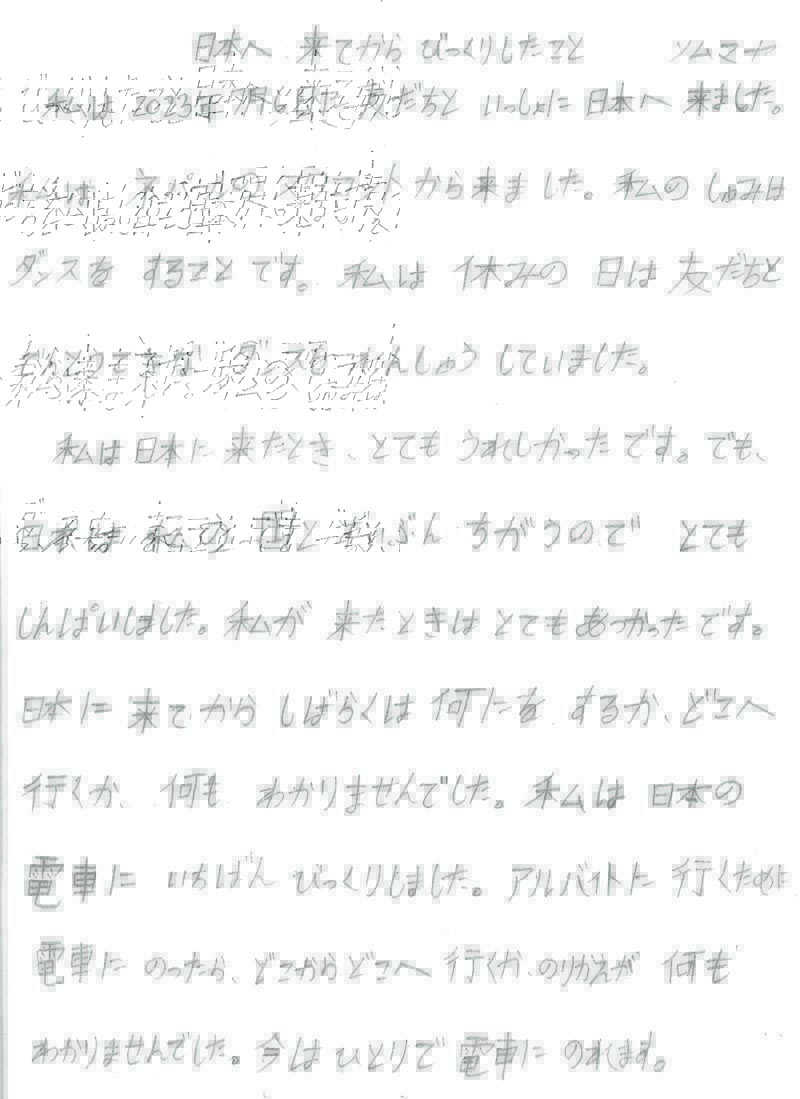 日本へ 来てから びっくりしたこと ソムマヤ
私は 2023年 7月6日に 友だちと いっしょに 日本へ 来ました。
私は ネパールの から来ました。私の しゅみは
ダンスを することです。私は 休みの 日は 友だちと
ダンスを れんしゅう していました。
私は 日本に 来たとき、とても うれしかったです。でも、
日本は 私の 国と ぜんぶん ちがうので とても
しんぱいしました。私が 来たときは とても あつかったです。
日本に 来てから しばらくは 何たを するか、どこへ
行くか、何も わかりませんでした。私は 日本の
電車に いちばん びっくりしました。アルバイトに 行くために
電車に のったら、どこからどこへ 行くか、のりかえが 何も
わかりませんでした。今は ひとりで 電車に のれます。